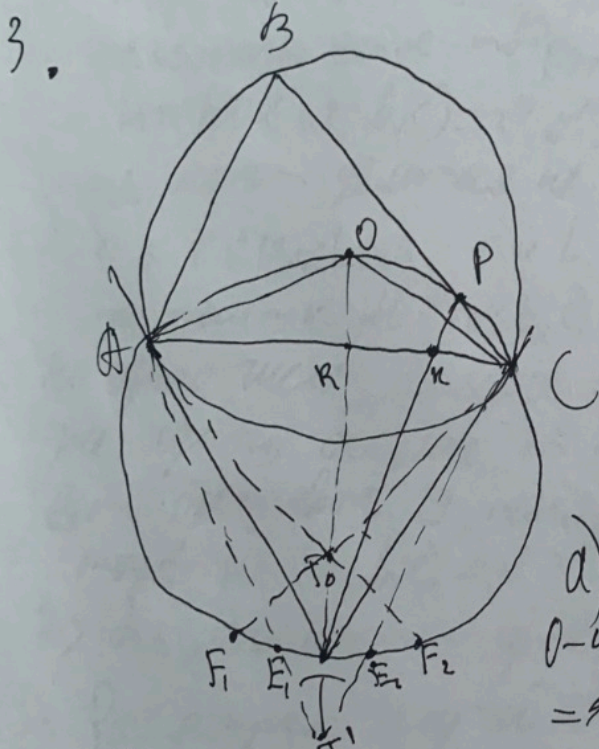 3.
B
O
P
A
R
K
C
T₀
а)
F₁ E₁ E₂ F₂
T
T'